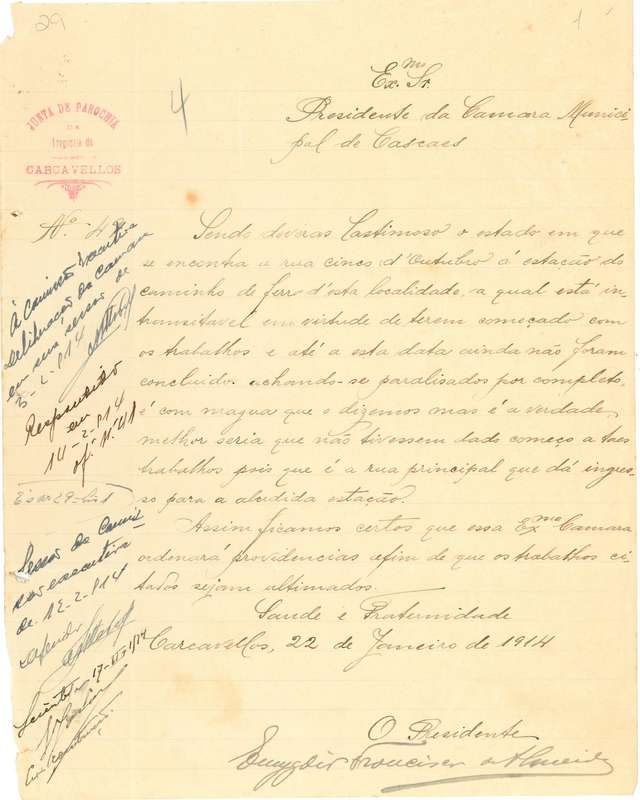 29
1
4
JUNTA DE PAROCHIA
DA
freguezia de
CARCAVELLOS
Exmo Sr.
Presidente da Camara Munici-
pal de Cascaes
Nº 48
Sendo deveras lastimoso o estado em que
se encontra a rua cinco d'Outubro á estação do
caminho de ferro d'esta localidade, a qual está in-
transitavel em virtude de terem começado com
os trabalhos e até a esta data ainda não foram
concluidos achando-se paralisados por completo,
é com magua que o dizemos mas é a verdade,
melhor seria que não tivessem dado começo a taes
trabalhos pois que é a rua principal que dá ingres-
so para a alludida estação.
Assim ficamos certos que essa Exma Camara
ordenará providencias afim de que os trabalhos ci-
tados sejam ultimados.
Saude e Fraternidade
Carcavellos, 22 de Janeiro de 1914
O Presidente
Emygdio Francisco d'Almeida
Á Comissão Executiva
deliberação da camara
em sua sessão de
5-2-914
Respondido
em
14-2-914
of. Nº 41
Sessão da Comis-
são executiva
de 12-2-914